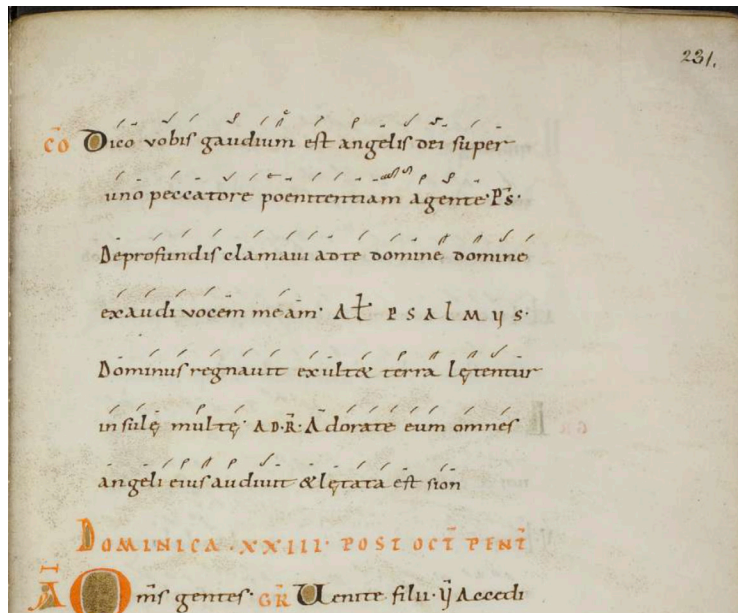 231.
c̄o Dico vobis gaudium est angelis dei super
uno peccatore poenitentiam agente· Ps·
Deprofundis clamavi adte domine domine
exaudi vocem meam· Alł PSALMUS·
Dominus regnavit exult& terra lętentur
insulę multę· AD·R̄· Adorate eum omnes
angeli eius audivit &lętata est sion
DOMINICA·XXIII·POST OCT̄ PENT̄
A Om̄s gentes· GR̄ Venite filii· ẏ Accedi